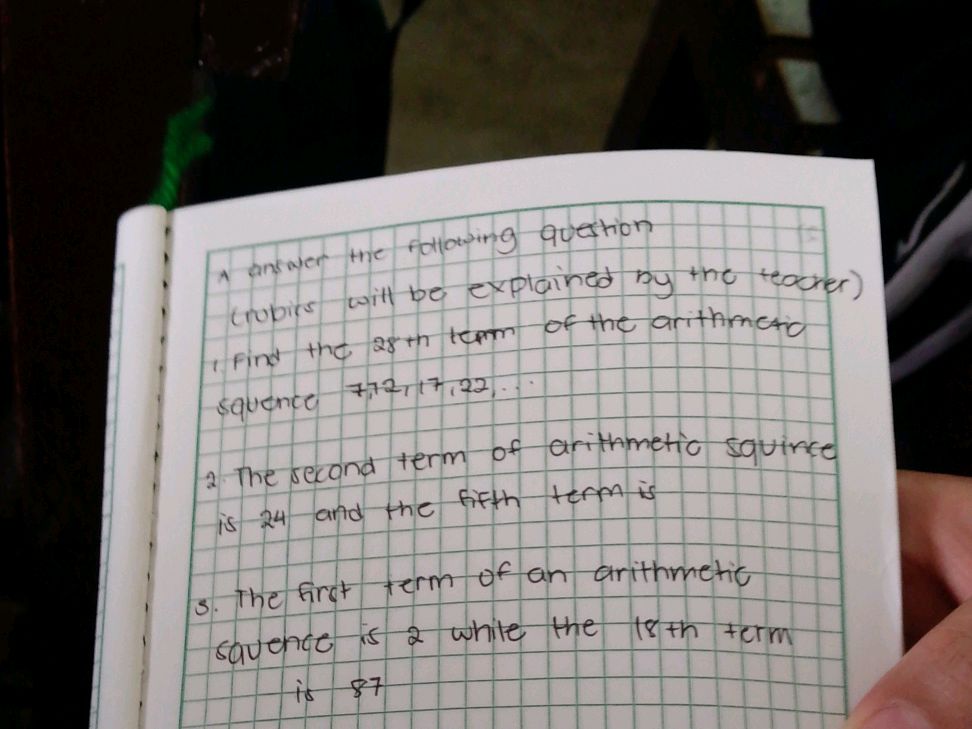 A answer the following question
(rubics will be explained by the teacher)
1. Find the 28th term of the arithmetic
squence 7,12,17,22,...
2. The second term of arithmetic squince
is 24 and the fifth term is
3. The first term of an arithmetic
squence is 2 while the 18th term
is 87